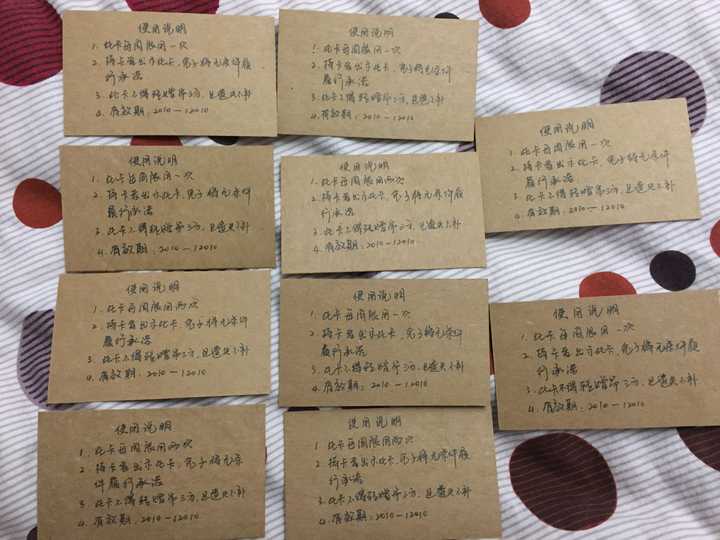 使用说明
1. 此卡每周限用一次
2. 持卡者出示此卡,兔子将无条件履
行承诺
3. 此卡不得转赠第三方,且遗失不补
4. 有效期:2010—12010
使用说明
1. 此卡每周限用一次
2. 持卡者出示此卡,兔子将无条件
履行承诺
3. 此卡不得转赠第三方,且遗失不补
4. 有效期:2010—12010
使用说明
1. 此卡每周限用一次
2. 持卡者出示此卡,兔子将无条件
履行承诺
3. 此卡不得转赠第三方,且遗失不补
4. 有效期:2010—12010
使用说明
1. 此卡每周限用一次
2. 持卡者出示此卡,兔子将无条件
履行承诺
3. 此卡不得转赠第三方,且遗失不补
4. 有效期:2010—12010
使用说明
1. 此卡每周限用两次
2. 持卡者出示此卡,兔子将无条件履
行承诺
3. 此卡不得转赠第三方,且遗失不补
4. 有效期:2010—12010
使用说明
1. 此卡每周限用两次
2. 持卡者出示此卡,兔子将无条件
履行承诺
3. 此卡不得转赠第三方,且遗失不补
4. 有效期:2010—12010
使用说明
1. 此卡每周限用一次
2. 持卡者出示此卡,兔子将无条件
履行承诺
3. 此卡不得转赠第三方,且遗失不补
4. 有效期:2010—12010
使用说明
1. 此卡每周限用一次
2. 持卡者出示此卡,兔子将无条件履
行承诺
3. 此卡不得转赠第三方,且遗失不补
4. 有效期:2010—12010
使用说明
1. 此卡每周限用两次
2. 持卡者出示此卡,兔子将无条
件履行承诺
3. 此卡不得转赠第三方,且遗失不补
4. 有效期:2010—12010
使用说明
1. 此卡每周限用两次
2. 持卡者出示此卡,兔子将无条件履
行承诺
3. 此卡不得转赠第三方,且遗失不补
4. 有效期:2010—12010